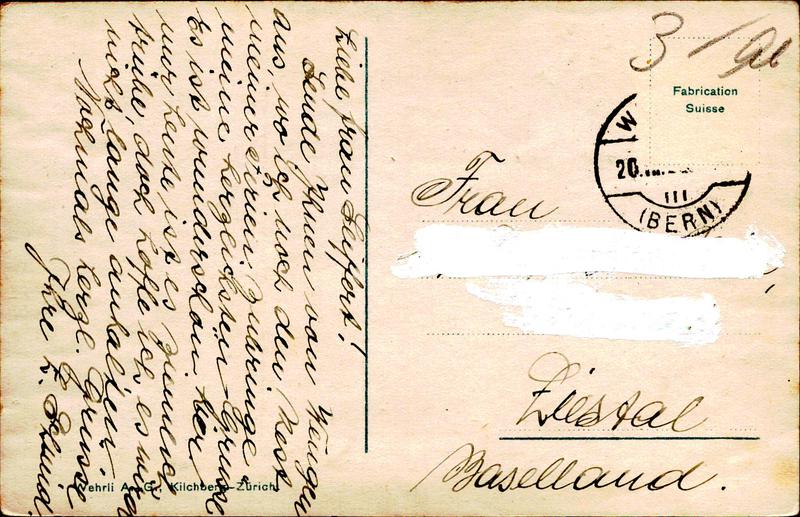 Liebe Frau Seiffert!
Sende Ihnen von Wengen
aus, wo ich noch den Rest
meiner Ferien zubringe
meine herzlichsten Grüsse
Es ist wunderschön hier
nur heute ist es ziemlich
trübe, doch hoffe ich es wird
nicht lange anhalten.
Nochmals herzl. Grüsse
Ihre E. Schmid
Wehrli A.-G., Kilchberg-Zürich
3
Fabrication
Suisse
W
20.
III
(BERN)
Frau
Liestal
Baselland.